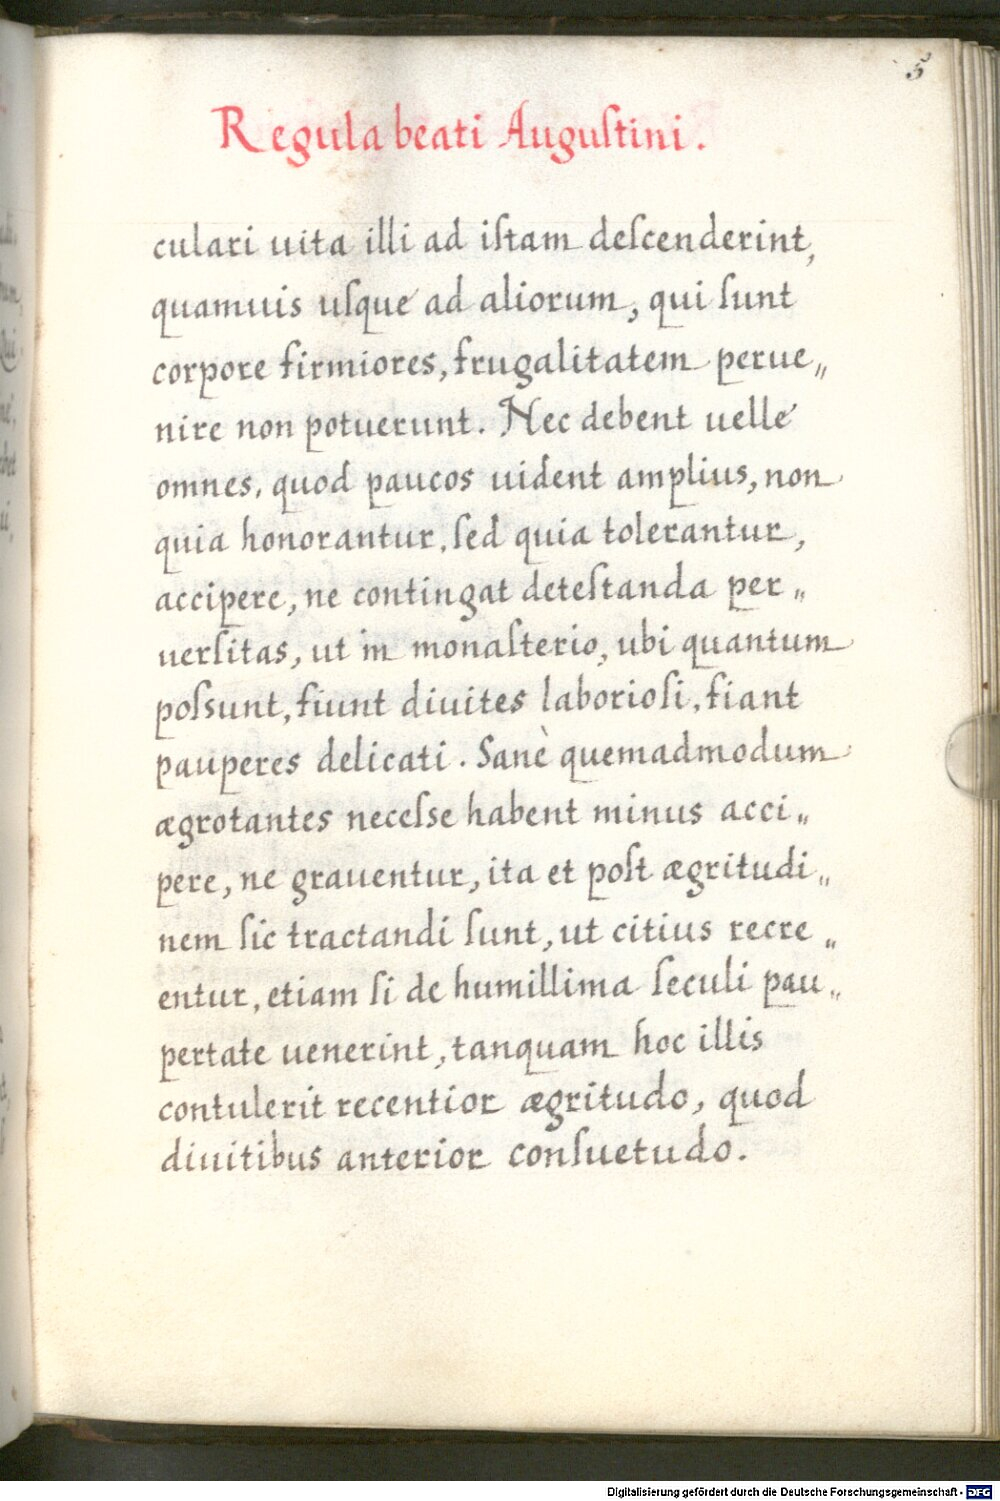 5
Regula beati Auguſtini.
culari uita illi ad iſtam deſcenderint,
quamuis uſque ad aliorum, qui ſunt
corpore firmiores, frugalitatem perue„
nire non potuerunt. Nec debent uelle
omnes, quod paucos uident amplius, non
quia honorantur, ſed quia tolerantur,
accipere, ne contingat deteſtanda per„
uerſitas, ut in monaſterio, ubi quantum
poſsunt, fiunt diuites laborioſi, fiant
pauperes delicati. Sanè quemadmodum
ægrotantes neceſse habent minus acci„
pere, ne grauentur, ita et poſt ægritudi„
nem ſic tractandi ſunt, ut citius recre„
entur, etiam ſi de humillima ſeculi pau„
pertate uenerint, tanquam hoc illis
contulerit recentior ægritudo, quod
diuitibus anterior conſuetudo.
Digitalisierung gefördert durch die Deutsche Forschungsgemeinschaft - DFG